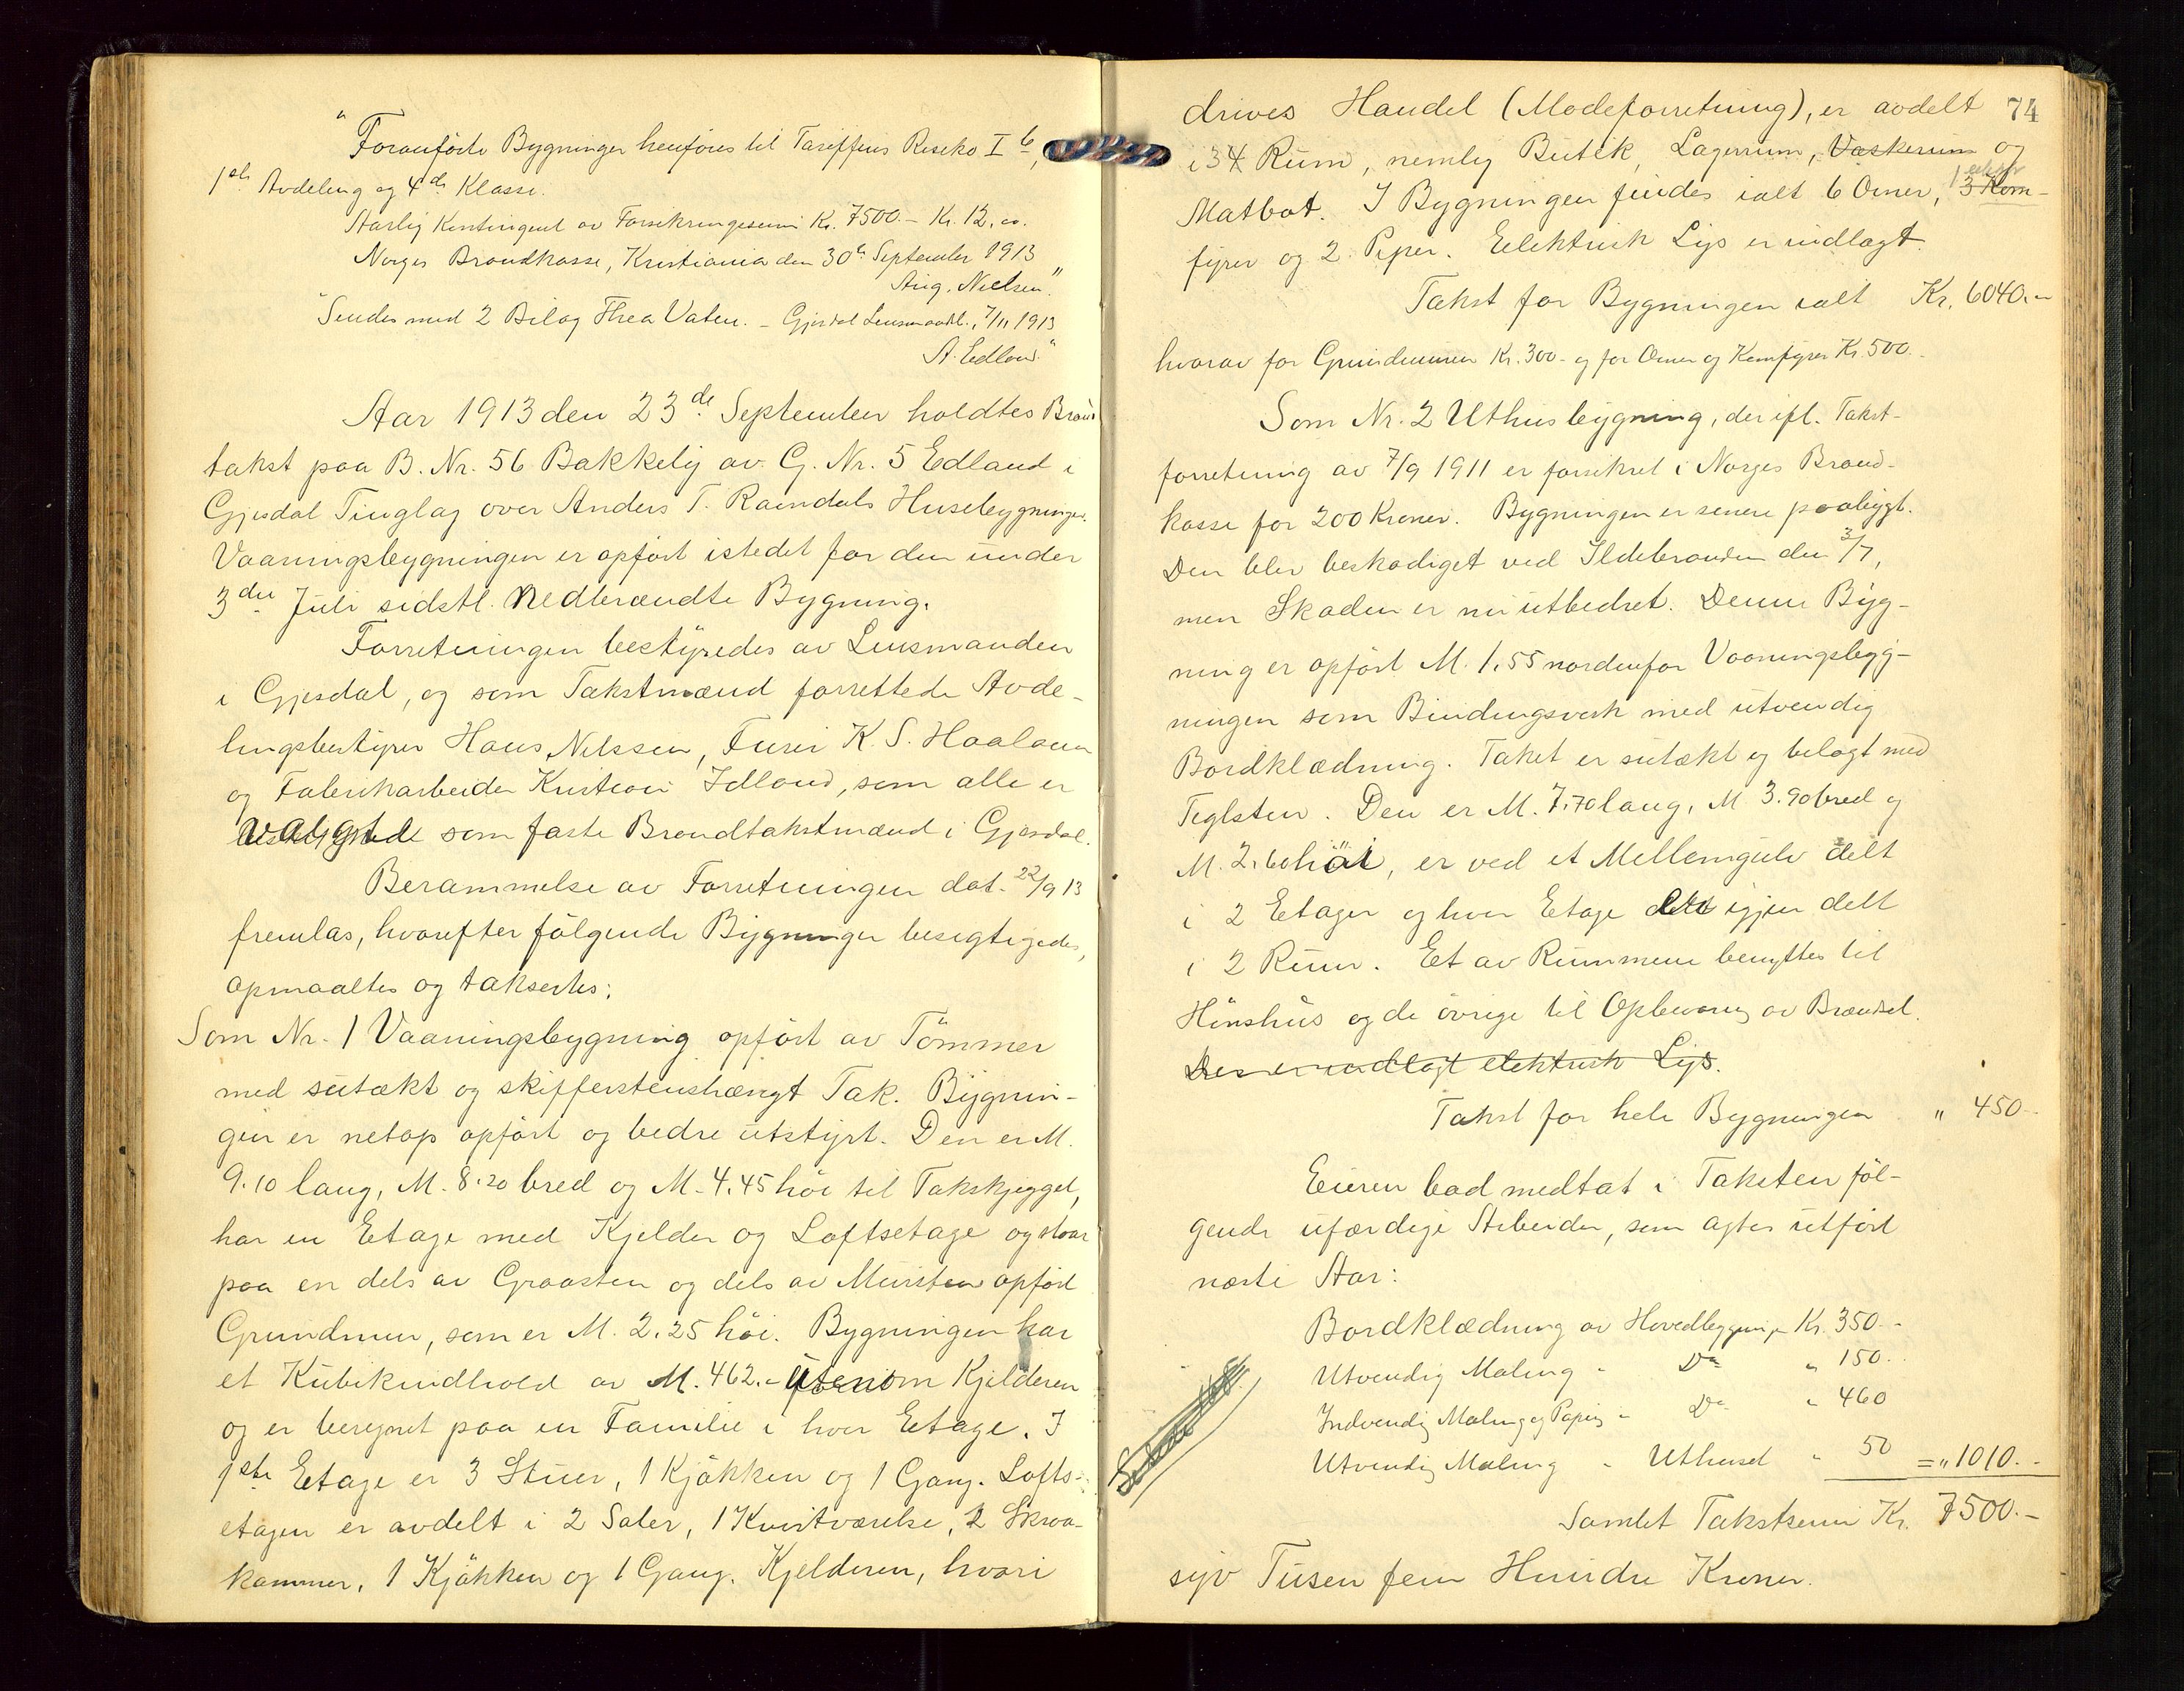 "Foranførte Bygninger henføres til Tariffens Risiko I b,
1ste Avdeling og 4de Klasse.
Aarlig Kontingent av Forsikringssum Kr. 7500.- Kr. 12,00.
Norges Brandkasse, Kristiania den 30te September 1913
Aug. Nielsen."
"Sendes med 2 Bilag Thea Vaten. - Gjesdal Lensmandsb., 7/11 1913
A. Edland."
Aar 1913 den 23de September holdtes Brand
takst paa B. Nr. 56 Bakkelij av G. Nr. 5 Edland i
Gjesdal Tinglag over Anders T. Ramdals Husebygninger.
Vaaningsbygningen er opført istedet for den under
3die Juli sidstl. Nedbrændte Bygning.
Forretningen bestyredes av Lensmanden
i Gjesdal, og som Takstmænd forrettede Avde-
lingsbestyrer Hans Nilssen, Furer K. S. Haaland
og Fabrikarbeider Kristian Idland, som alle er
valgte som faste Brandtakstmænd i Gjesdal.
Berammelse av Forretningen dat. 22/9 13
fremlas, hvorefter følgende Bygninger besigtigedes,
opmaaltes og taksertes:
Som Nr. 1 Vaaningsbygning opført av Tømmer
med sutækt og skifferstenshængt Tak. Bygnin-
gen er netop opført og bedre utstyrt. Den er M.
9.10 lang, M. 8.20 bred og M. 4.45 høi til Takskjegget,
har en Etage med Kjelder og Loftsetage og staar
paa en dels av Graasten og dels av Mursten opført
Grundmur, som er M. 2.25 høi. Bygningen har
et Kubikindhold av M. 462.- Utenom Kjelderen
og er beregnet paa en Familie i hver Etage. I
1ste Etage er 3 Stuer, 1 Kjøkken og 1 Gang. Lofts-
etagen er avdelt i 2 Saler, 1 Kvistværelse, 2 Skraa-
kammer, 1 Kjøkken og 1 Gang. Kjelderen, hvori
74
drives Handel (Modeforretning), er avdelt
i 3 4 Rum, nemlig Butik, Lagerrum, Vaskerum og
Matbot. I Bygningen findes ialt 6 Omer, 3 Kom-
fyrer og 2 Piper. Elektrisk Lys er indlagt.
Takst for Bygningen ialt Kr. 6040.-
hvorav for Grundmuren Kr. 300.- og for Omer og Komfyrer Kr. 500.-
Som Nr. 2 Uthusbygning, der ifl. Takst-
forretning av 7/9 1911 er forsikret i Norges Brand-
kasse for 200 Kroner. Bygningen er senere paabygt.
Den blev beskadiget ved Ildebranden den 3/7,
men Skaden er nu utbedret. Denne Byg-
ning er opført M. 1.55 nordenfor Vaaningsbyg-
ningen som Bindingsverk med utvendig
Bordklædning. Taket er sutækt og belagt med
Teglsten. Den er M. 7.70 lang, M. 3.90 bred og
M. 2.60 høi, er ved et Mellemgulv delt
i 2 Etager og hver Etage igjen delt
i 2 Rum. Et av Rummene benyttes til
Hønshus og de øvrige til Opbevaring av Brændsel.
Der er indlagt elektrisk Lys.
Takst for hele Bygningen " 450.-
Eieren bad medtat i Taksten føl-
gende ufærdige Arbeider, som agtes utført
næste Aar:
Bordklædning av Hovedbygning Kr. 350.-
Utvendig Maling - Do " 150.-
Indvendig Maling og Papir - Do " 460
Utvendig Maling - Uthuset " 50 = " 1010.-
Samlet Takstsum Kr. 7500.-
syv Tusen fem Hundre Kroner.